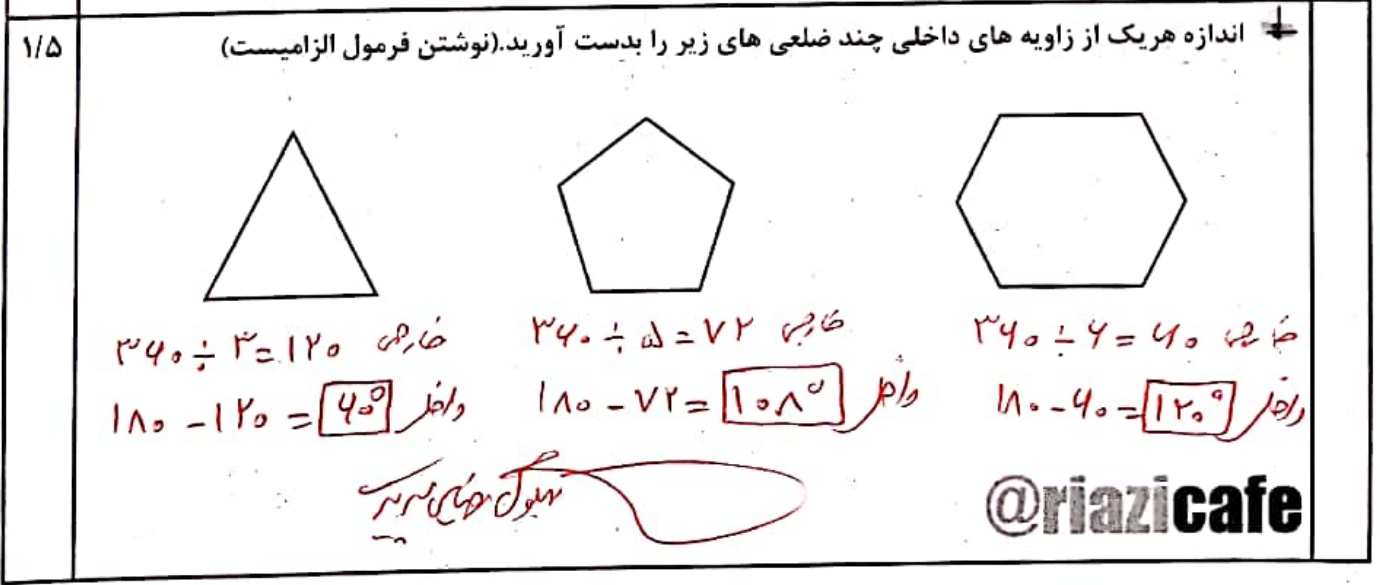 اندازه هریک از زاویه های داخلی چند ضلعی های زیر را بدست آورید.(نوشتن فرمول الزامیست)
۱/۵
خارجی ۳۶۰ ÷ ۶ = ۶۰
داخلی ۱۸۰ - ۶۰ = ۱۲۰°
خارجی ۳۶۰ ÷ ۵ = ۷۲
داخلی ۱۸۰ - ۷۲ = ۱۰۸°
خارجی ۳۶۰ ÷ ۳ = ۱۲۰
داخلی ۱۸۰ - ۱۲۰ = ۶۰°
@riazicafe